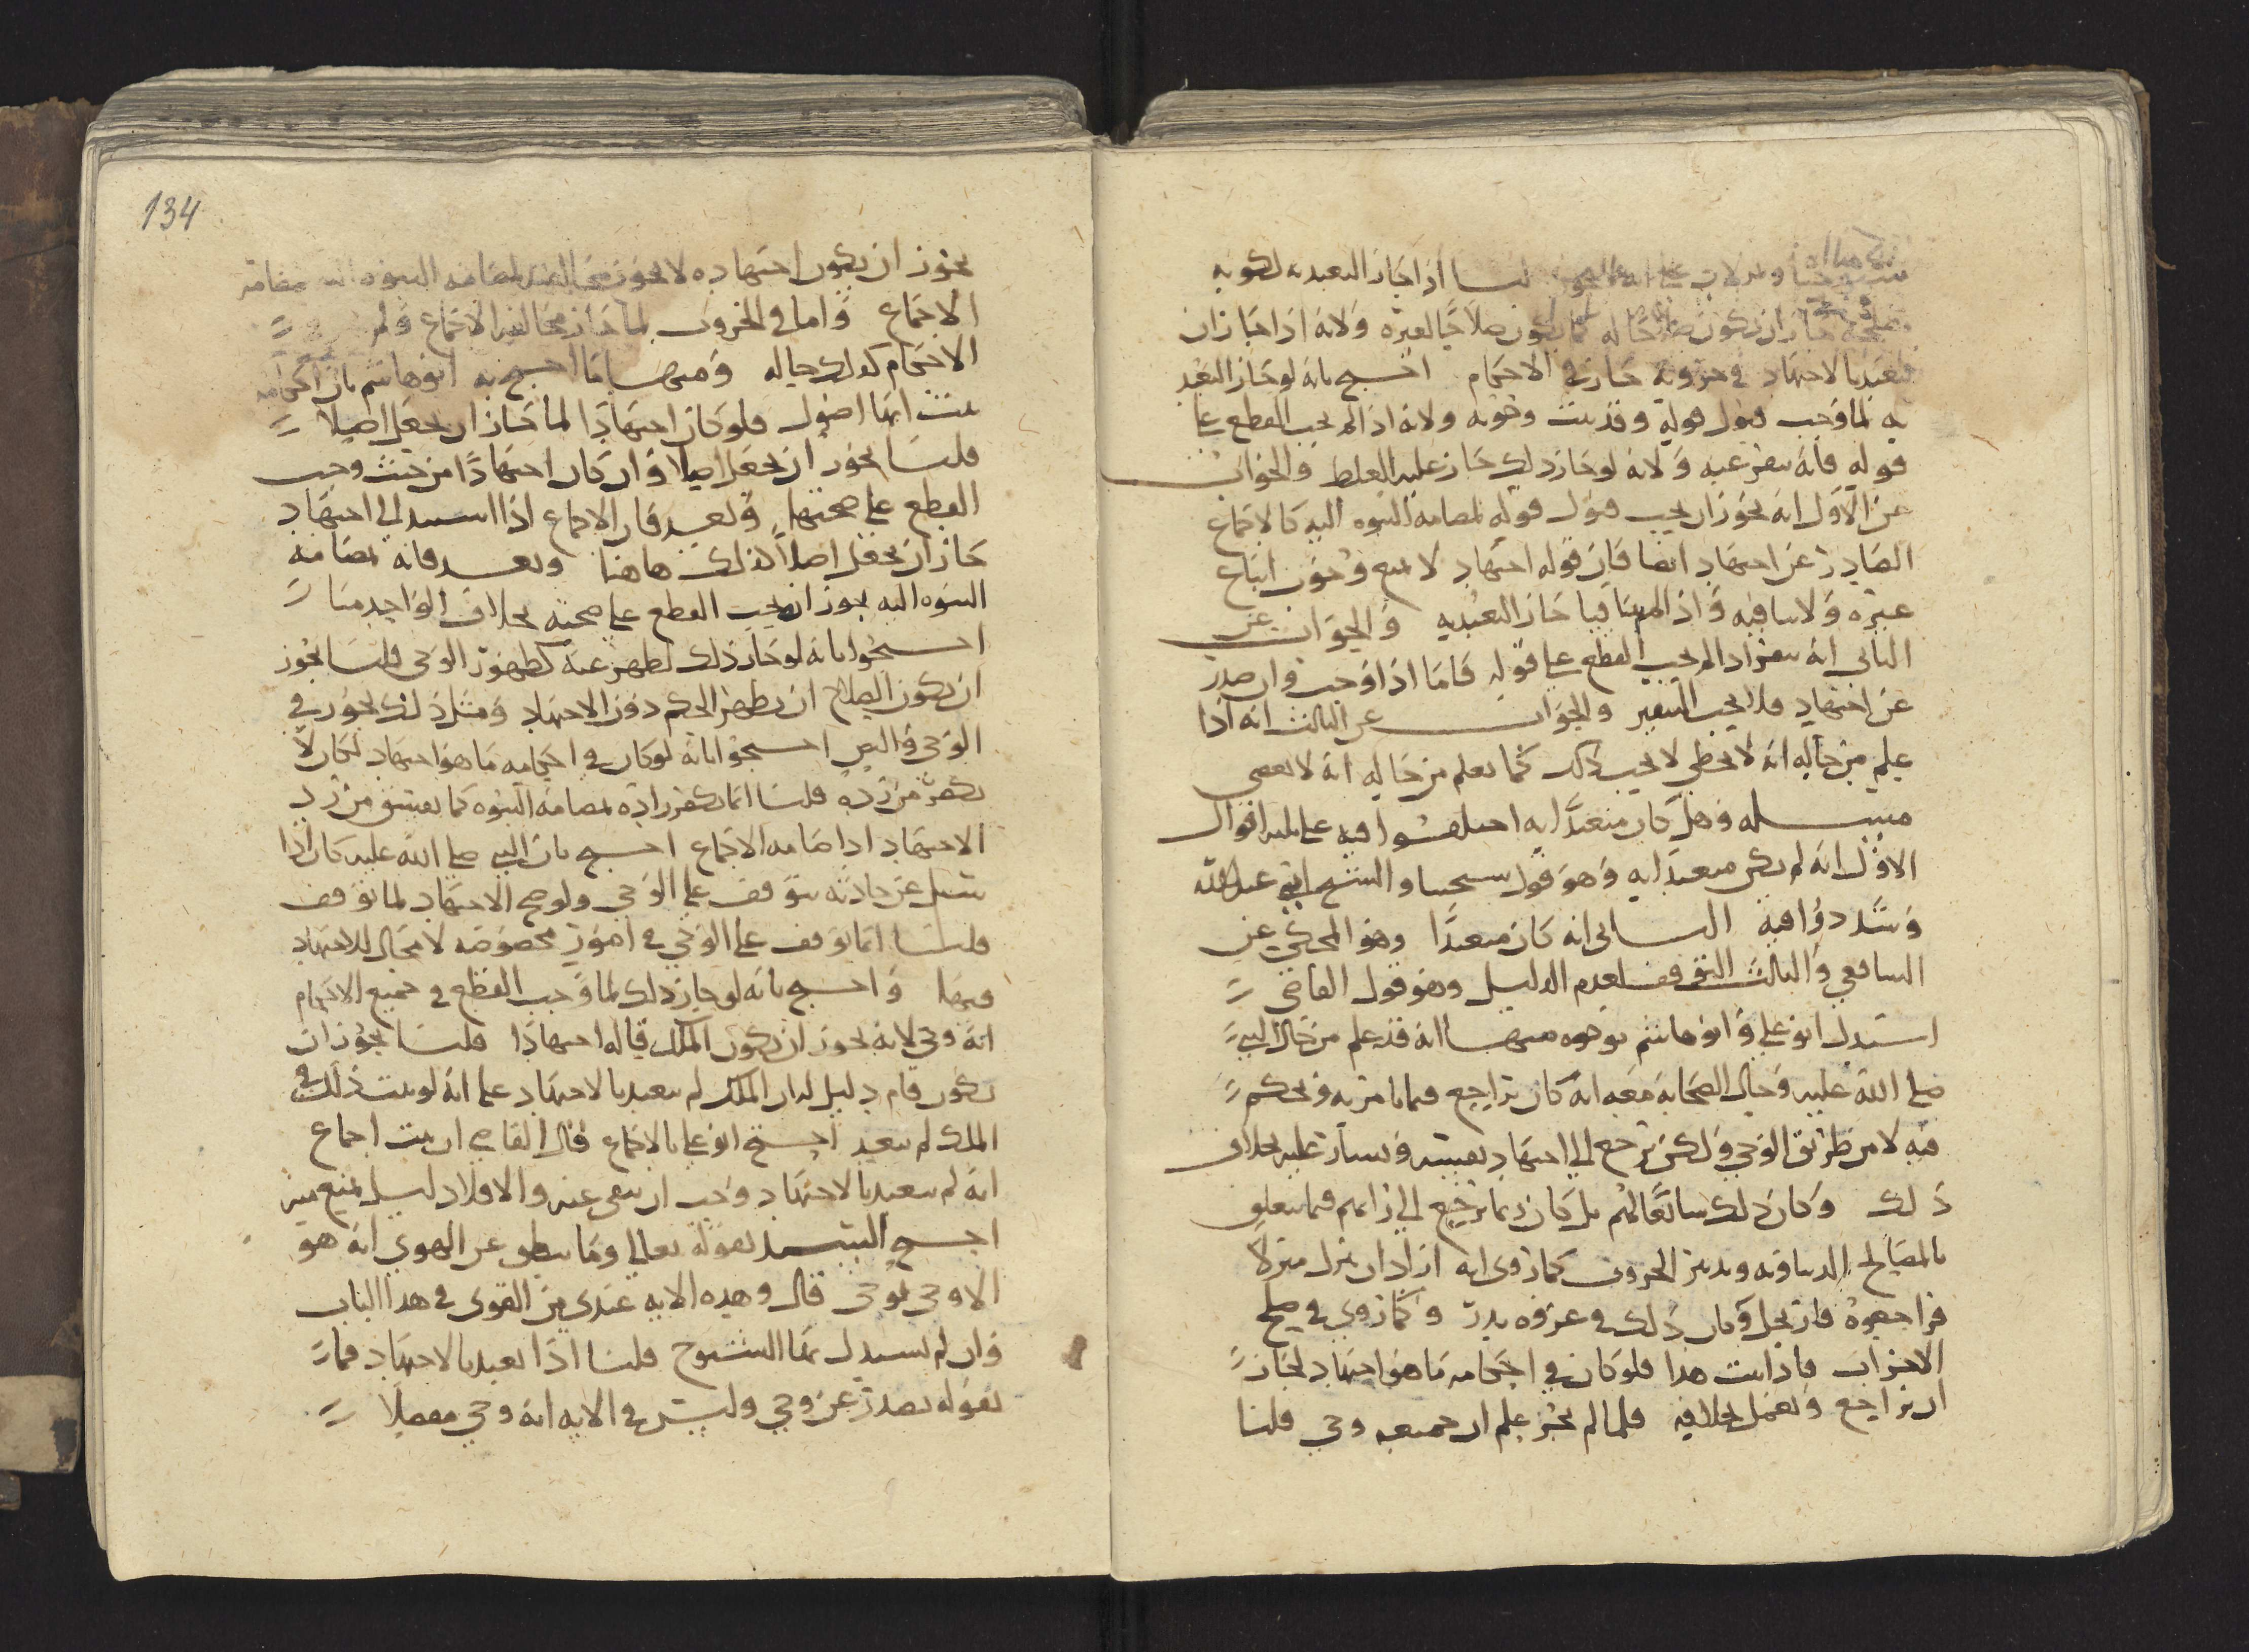 لنا اذا جاز التعبد به لكونه
جاز ان يكون صلاحا له كما يكون صلاحا لغيره ولانه اذا جاز ان
يتعبد بالاجتهاد في حروبه جاز في الاحكام احتج بانه لو جاز التعبد
به لما وجب قبول قوله وقد ثبت وجوبه ولانه اذا لم يجب القطع على
قوله فانه ينفر عنه ولانه لو جاز ذلك جاز عليه الغلط والجواب
عن الاول انه يجوز ان يجب قبول قوله لمضامة النبوه اليه كالاجماع
الصادر عن اجتهاد ايضا فان قوله اجتهاد لا يمنع وجوب اتباع
غيره ولا ينافيه واذا لم يتنافيا جاز التعبد به والجواب عن
الثاني انه ينفر اذا لم يجب القطع على قوله فاما اذا وجب وان صدر
عن اجتهاد فلا يجب التنفير والجواب عن الثالث انه اذا
علم من حاله انه لا يخطي لا يجب ذلك كما نعلم من حاله انه لا يعصي
مسله وهل كان متعبدا به اختلفوا فيه على ثلثه اقوال
الاول انه لم يكن متعبدا به وهو قول شيخينا والشيخ ابي عبد الله
وشدد فيه الثاني انه كان متعبدا وهو المحكي عن
الشافعي والثالث التوقف لعدم الدليل وهو قول القاضي
استدل ابو علي وابو هاشم بوجوه منها انه قد علم من حال النبي
صلى الله عليه وحال الصحابة معه انه كان يراجع فيما يامر به ويحكم
فيه لا من طريق الوحي ولكن يرجع الى اجتهاد نفسه ويشار عليه بخلاف
ذلك وكان ذلك سائغا لهم بل كان ربما يرجع الى رائهم فيما يتعلق
بالمصالح الدنياويه وتدبير الحروب كما روي انه اراد ان ينزل منزلا
فراجعوه فارتحل وكان ذلك في غزوه بدر وكما روي في صلح
الاحزاب فاذا ثبت هذا فلو كان في احكامه ما هو اجتهاد لجاز
ان يراجع ويعمل بخلافه فلما لم يجز علم ان جميعه وحي قلنا
134
يجوز ان يكون اجتهاده لا يجوز مخالفته لمضامة النبوه
الاجماع واما في الحروب لما جاز مخالفه الاجماع
الاحكام كذلك حاله ومنها ما احتج به ابو هاشم بان احكامه
ثبت انها اصول فلو كان اجتهادا لما جاز ان يجعل اصلا
قلنا يجوز ان يجعل اصلا وان كان اجتهادا من حيث وجب
القطع على صحتها وبعد فان الاجماع اذا استند الى اجتهاد
جاز ان يجعل اصلا كذلك هاهنا وبعد فانه لمضامة
النبوه اليه يجوز ان يجب القطع على صحته بخلاف الواحد منا
احتجوا بانه لو جاز ذلك لظهر عنه كظهور الوحي قلنا يجوز
ان يكون الصلاح ان يظهر الحكم دون الاجتهاد ومثل ذلك يجوز في
الوحي والنص احتجوا بانه لو كان في احكامه ما هو اجتهاد لكان لا
يكفر من رده قلنا انما يكفر راده لمضامة النبوه كما يفسق من رد
الاجتهاد اذا ضامه الاجماع احتج بان النبي صلى الله عليه كان اذا
سئل عن حادثه يتوقف على الوحي ولو صح الاجتهاد لما توقف
قلنا انما توقف على الوحي في امور مخصوصه لا مجال للاجتهاد
فيها واحتج بانه لو جاز ذلك لما وجب القطع في جميع الاحكام
انه وحي لانه يجوز ان يكون الملك قاله اجتهادا قلنا يجوز ان
يكون قام دليل ان الملك لم يتعبد بالاجتهاد على انه لو ثبت ذلك في
الملك لم يبعد احتج ابو علي بالاجماع قال القاضي ان ثبت اجماع
انه لم يتعبد بالاجتهاد وجب ان ينفى عنه والا فلا دليل يمنع منه
احتج السيد بقوله تعالى وما ينطق عن الهوى ان هو
الا وحي يوحى قال وهذه الايه عندي من القوي في هذا الباب
وان لم يستدل بها الشيوخ قلنا اذا تعبد بالاجتهاد فما
يقوله يصدر عن وحي وليس في الايه انه وحي مفصلا